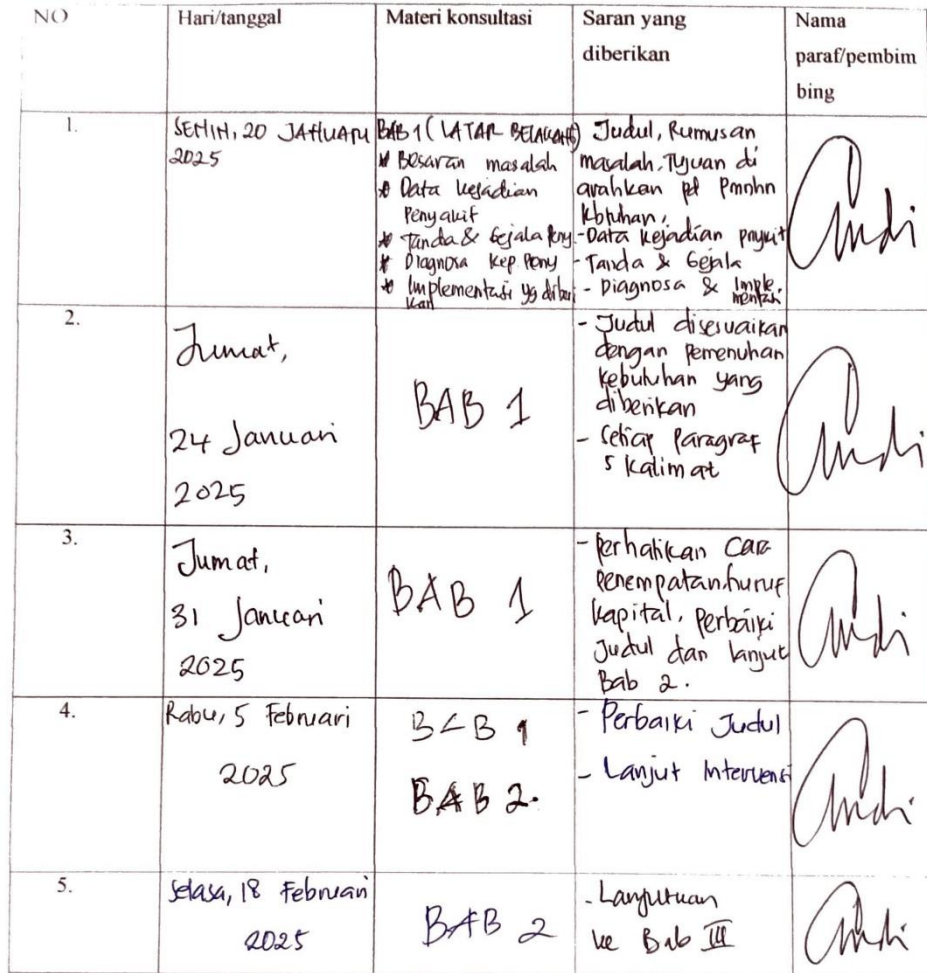 NO
Hari/tanggal
Materi konsultasi
Saran yang
diberikan
Nama
paraf/pembim
bing
1.
SENIN, 20 JANUARI
2025
BAB 1 (LATAR BELAKANG)
* Besaran masalah
* Data kejadian
Penyakit
* Tanda & Gejala Peny
* Diagnosa Kep Peny
* Implementasi yg diberi
kan
Judul, Rumusan
masalah, Tujuan di
arahkan pd Pmnhn
kbtuhan,
- Data kejadian pnykit
- Tanda & Gejala
- Diagnosa & Imple
mentasi
2.
Jumat,
24 Januari
2025
BAB 1
- Judul disesuaikan
dengan Pemenuhan
kebutuhan yang
diberikan
- Setiap Paragraf
5 kalimat
3.
Jumat,
31 Januari
2025
BAB 1
- Perhatikan Cara
Penempatan huruf
kapital, Perbaiki
Judul dan lanjut
Bab 2.
4.
Rabu, 5 Februari
2025
BAB 1
BAB 2.
- Perbaiki Judul
- Lanjut Intervensi
5.
Selasa, 18 Februari
2025
BAB 2
- Lanjutkan
ke Bab III